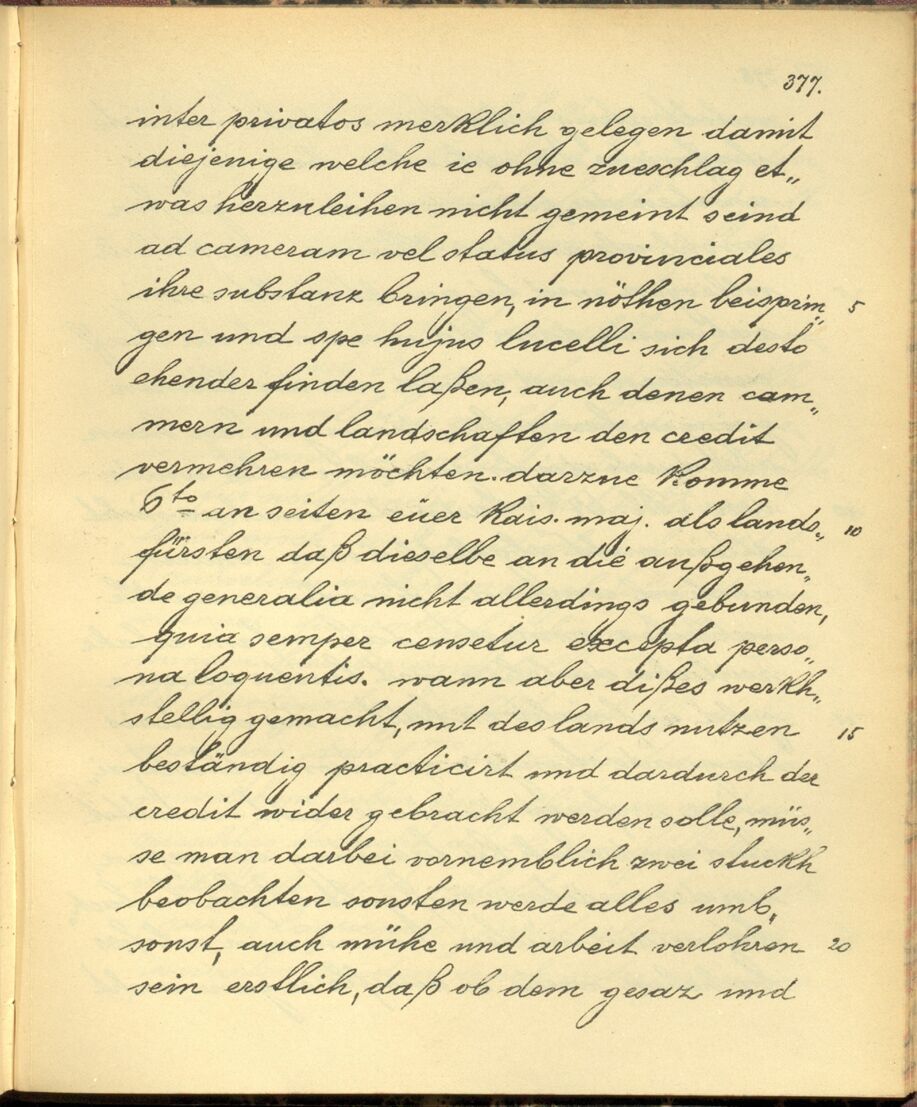 377.
inter privatos merklich gelegen damit
diejenige welche ie ohne zueschlag et„
was herzuleihen nicht gemeint seind
ad cameram vel status provinciales
ihre substanz bringen, in nöthen beisprin„ 5
gen und spe hujus lucelli sich desto
ehender finden laßen, auch denen cam„
mern und landschaften den credit
vermehren möchten. darzue komme
6to an seiten eüer kais. maj. als lands„ 10
fürsten daß dieselbe an die außgehen„
de generalia nicht allerdings gebunden,
quia semper censetur excepta perso„
na loquentis. wann aber dißes werkh„
stellig gemacht, mit des lands nutzen 15
beständig practicirt und dardurch der
credit wider gebracht werden solle, müs„
se man darbei vornemblich zwei stuckh
beobachten sonsten werde alles umb„
sonst, auch mühe und arbeit verlohren 20
sein erstlich, daß ob dem gesaz und